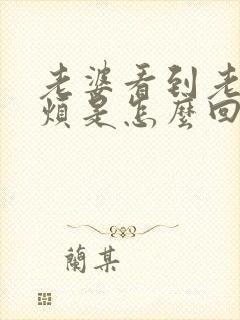 老婆看到老
煩是怎麼回
蘭某